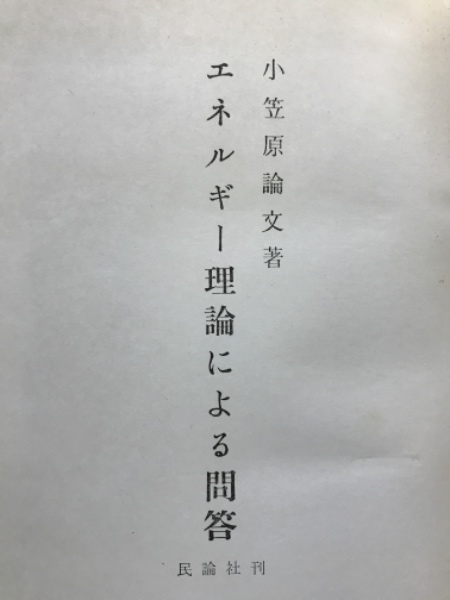 小笠原論文著
エネルギー理論による問答
民論社刊